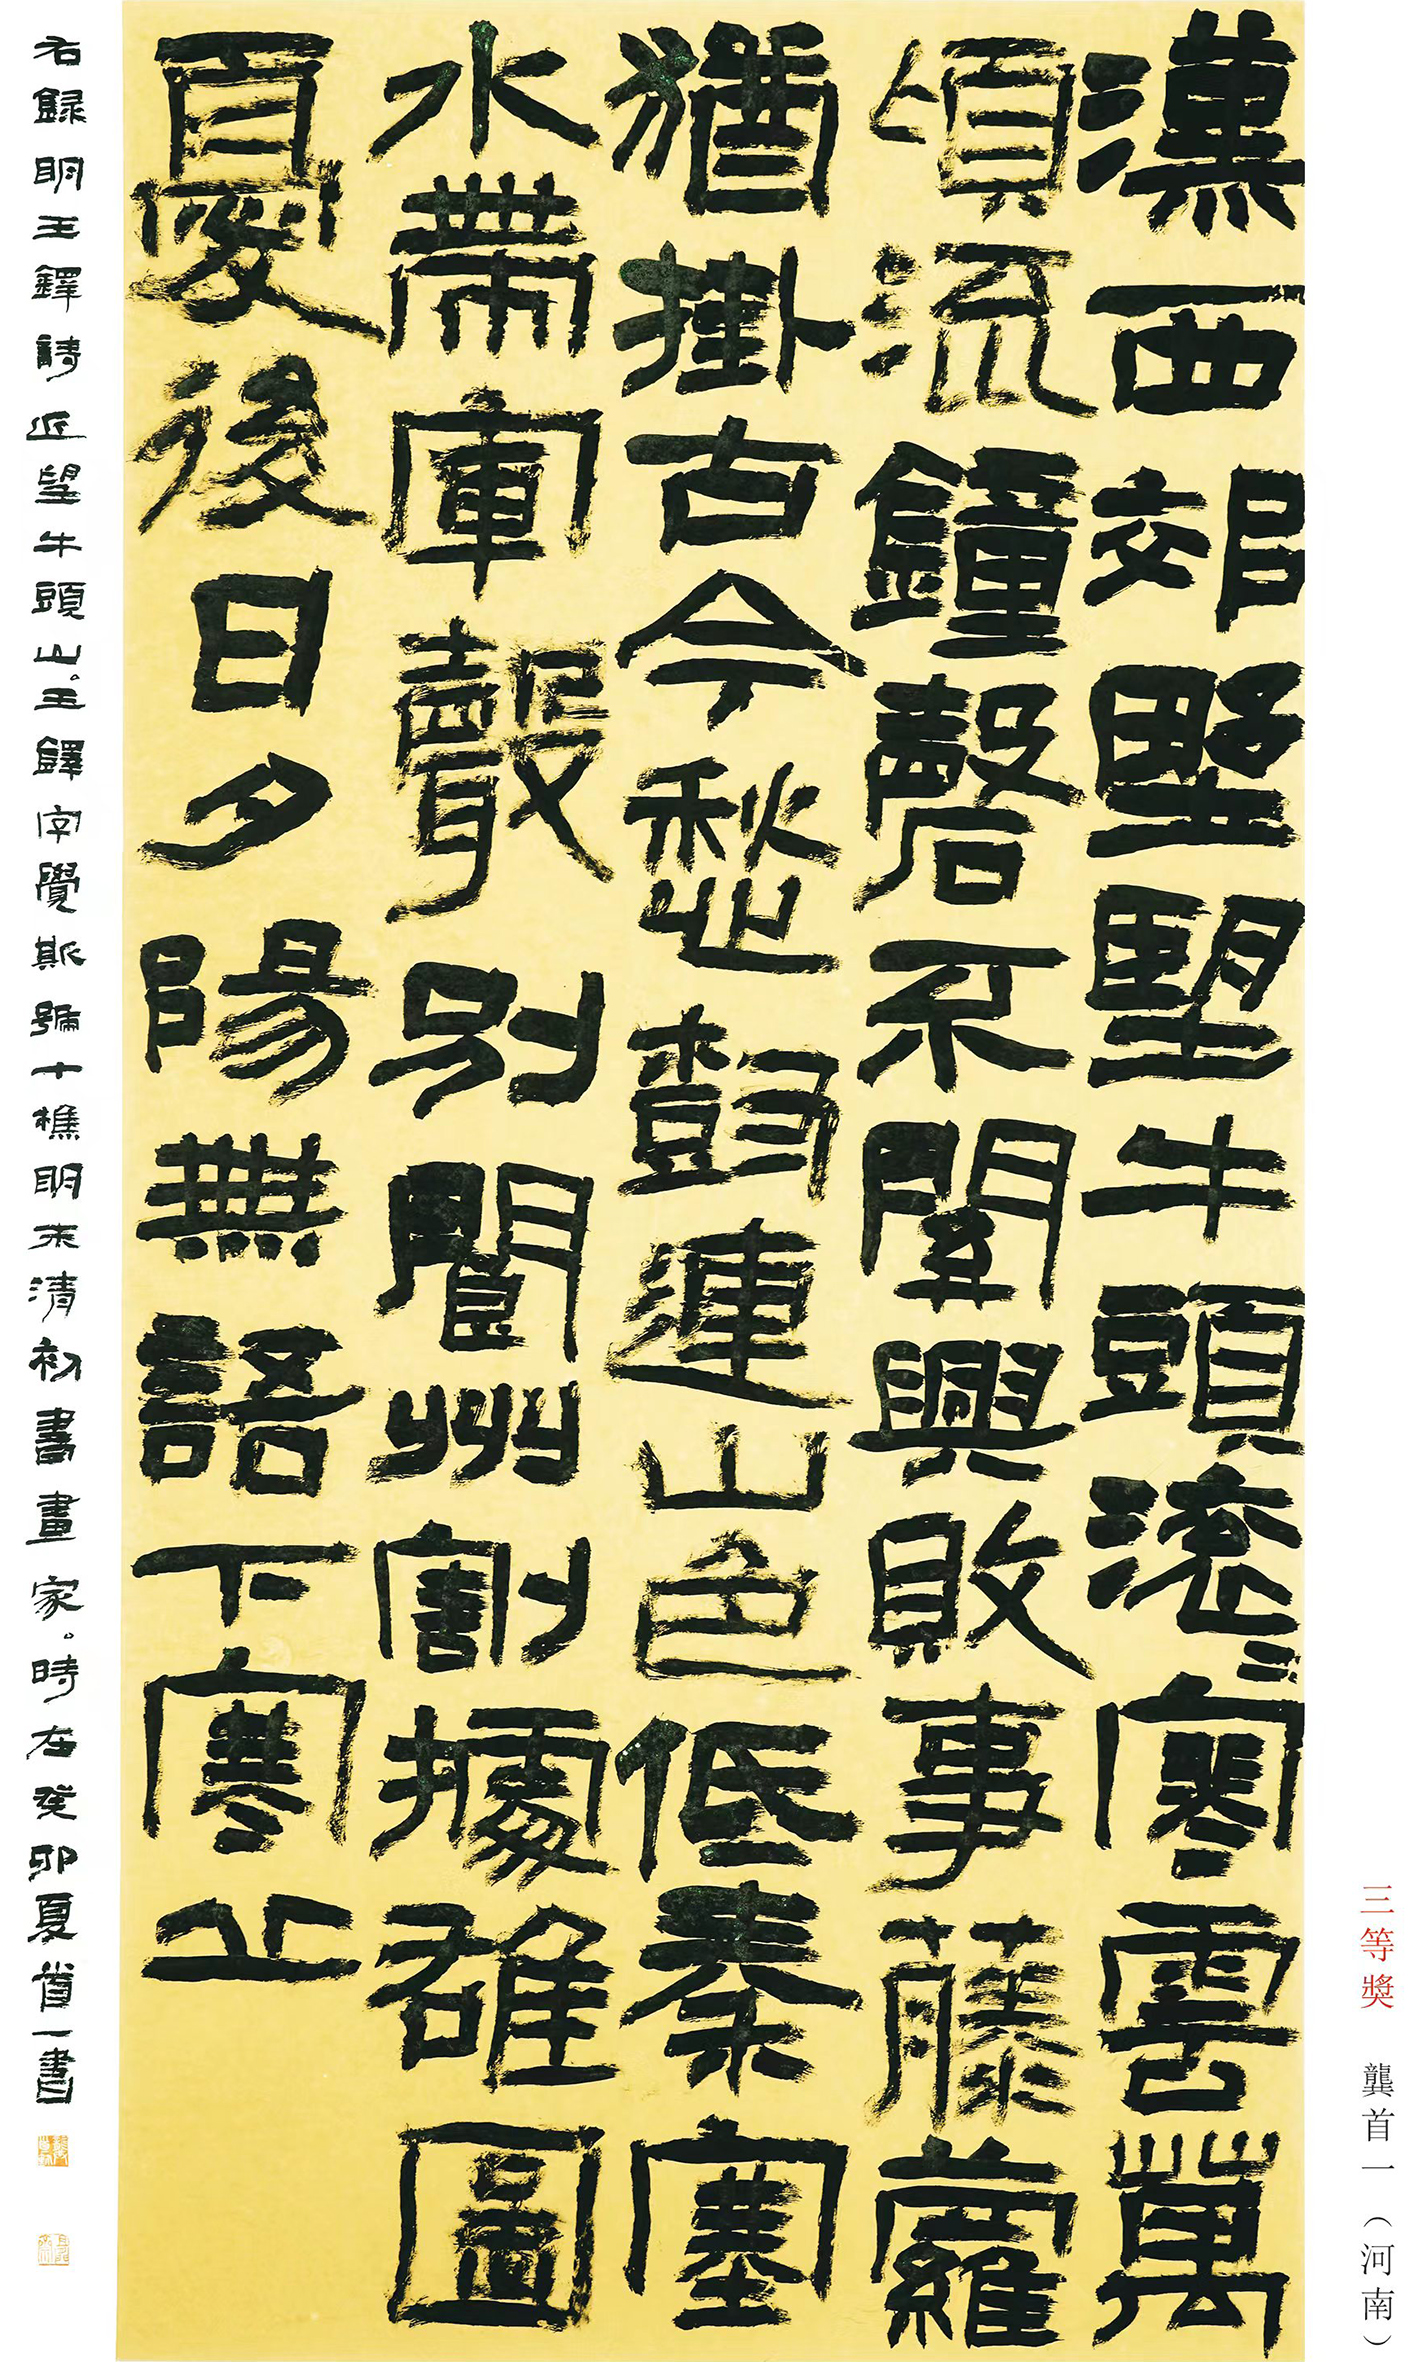 三等獎　龔首一（河南）
漢西郊野望牛頭滚〻寒雲萬
頃流鐘磬不關興敗事藤蘿
猶掛古今愁鼓連山色低秦塞
水帶軍聲別閬州割據雄圖
百憂後日夕陽無語下寒丘
右録明王鐸詩近望牛頭山。王鐸字覺斯號十樵明末清初書畫家。時在癸卯夏首一書